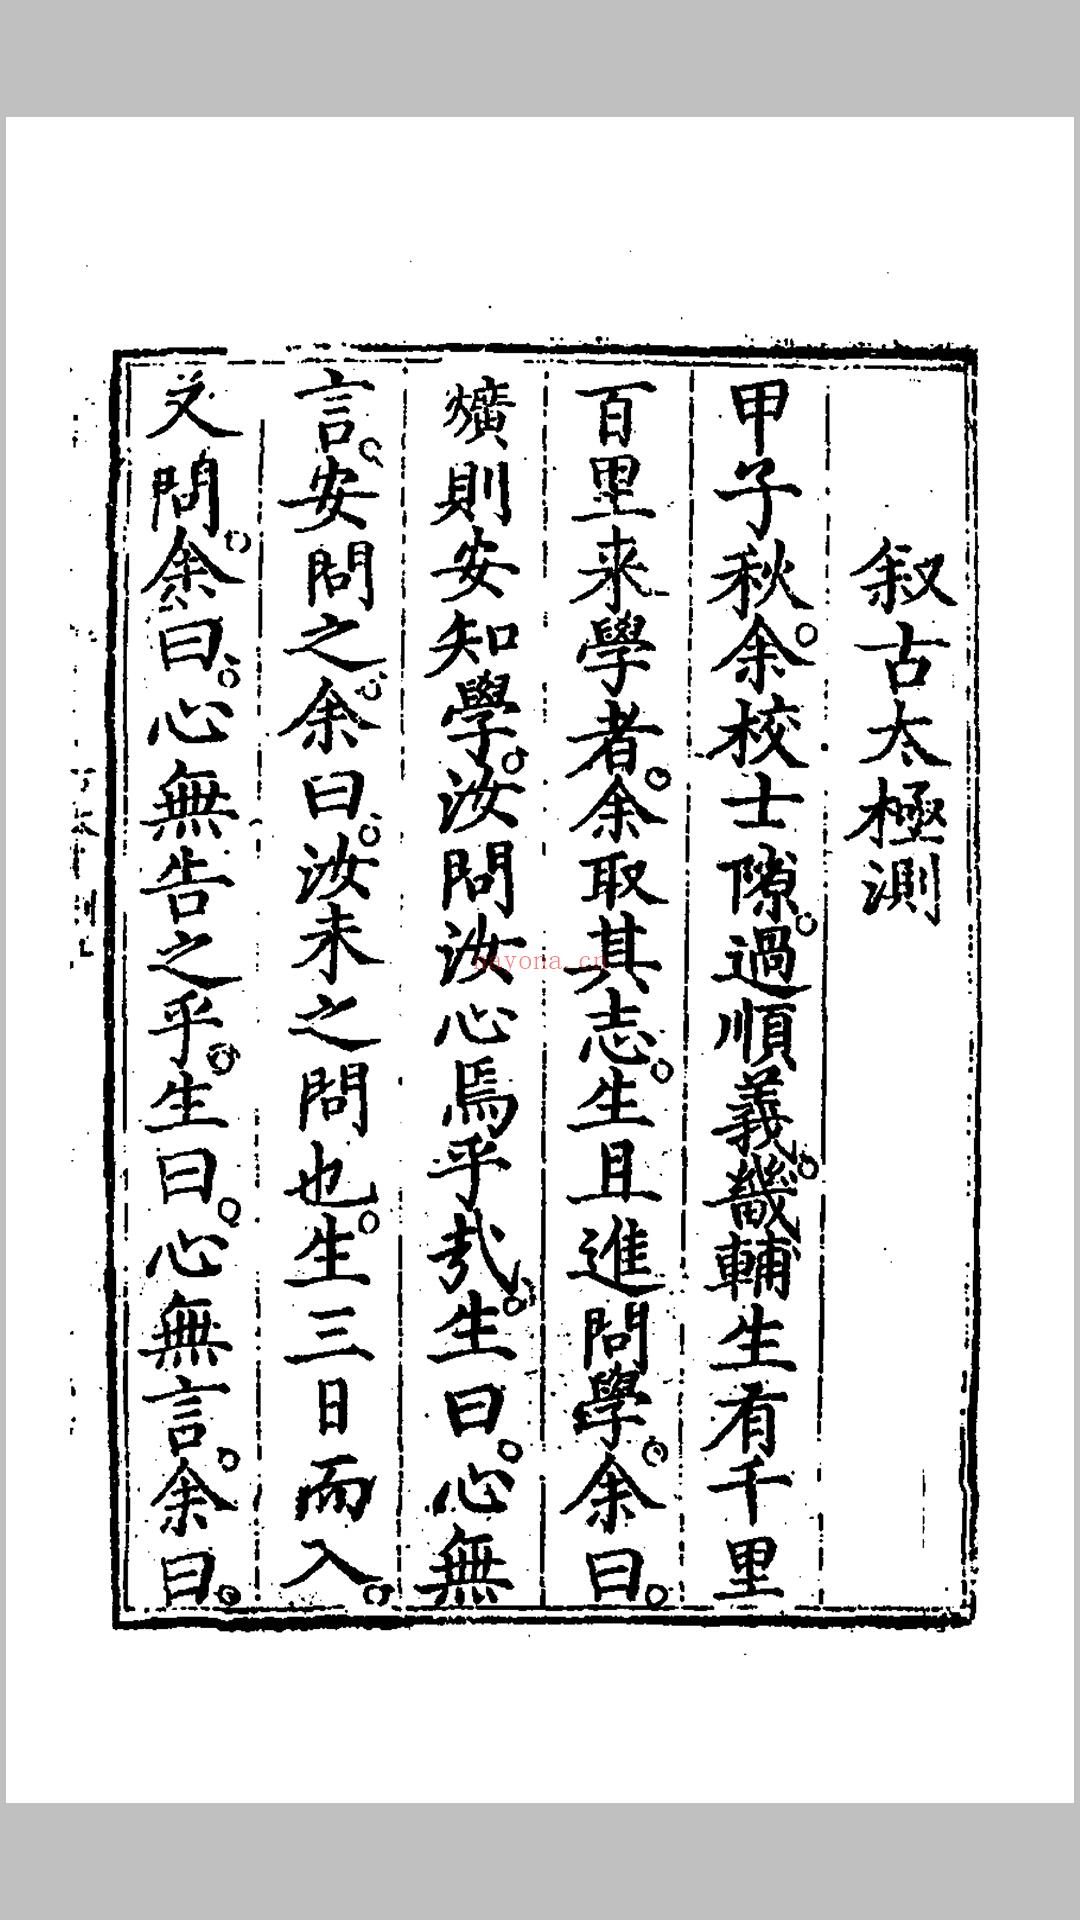 叙古太極測
甲子秋。余校士隙。過順義。畿輔生有千里
百里来學者。余取其志。生且進問學。余曰。
爌則安知學。汝問汝心焉乎哉。生曰。心無
言。安問之。余曰。汝未之問也。生三日而入。
又問。余曰。心無告之乎。生曰。心無言。余曰。
nayona.cn